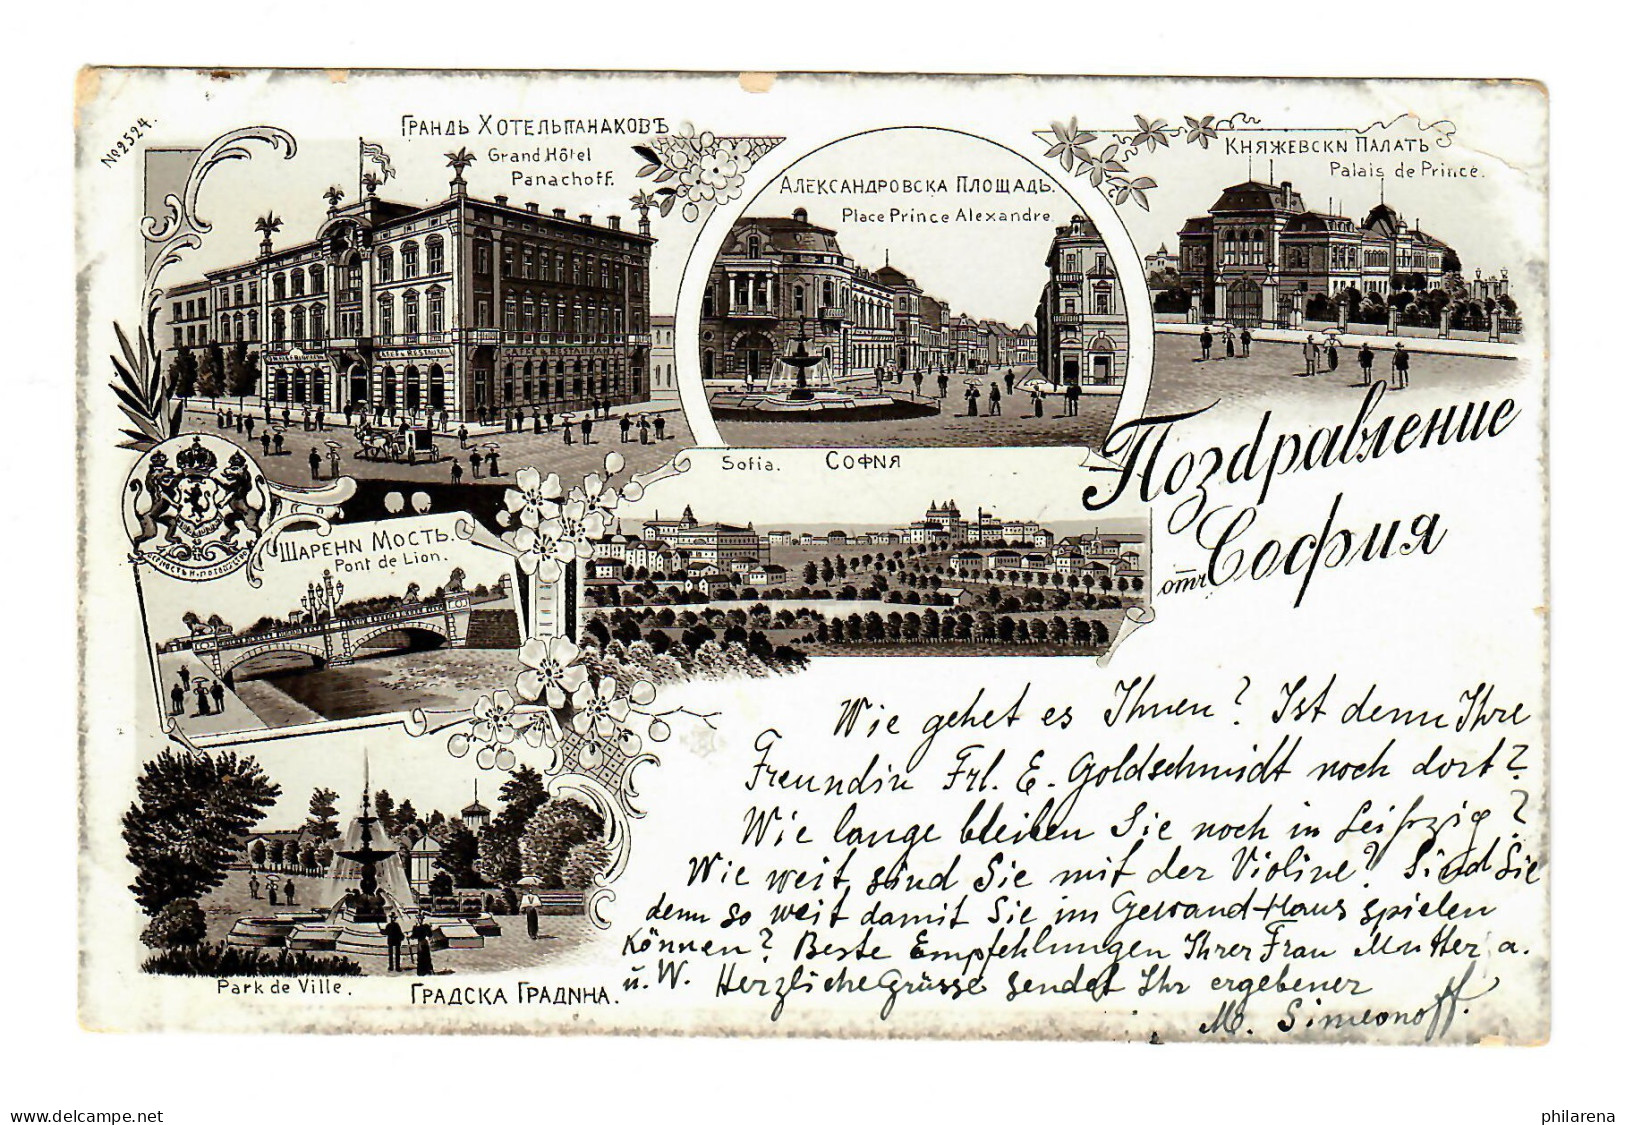 No 2524.
ГРАНДЬ ХОТЕЛЬПАНАКОВЪ
Grand Hôtel
Panachoff.
CAFÉ & RESTAURANT
АЛЕКСАНДРОВСКА ПЛОЩАДЬ.
Place Prince Alexandre
КНЯЖЕВСКИ ПАЛАТЬ
Palais de Prince.
Поздравление
отъ София
Sofia. СОФИЯ
ШАРЕНИ МОСТЬ.
Pont de Lion.
Park de Ville.
ГРАДСКА ГРАДИНА.
Wie gehet es Ihnen? Ist denn Ihre
Freundin Frl. E. Goldschmidt noch dort?
Wie lange bleiben Sie noch in Leipzig?
Wie weit sind Sie mit der Violine? Sind Sie
denn so weit damit Sie im Gewand-Haus spielen
können? Beste Empfehlungen Ihrer Frau Mutter a.
u. W. Herzliche Grüsse sendet Ihr ergebener
M. Simeonoff.
www.delcampe.net
philarena